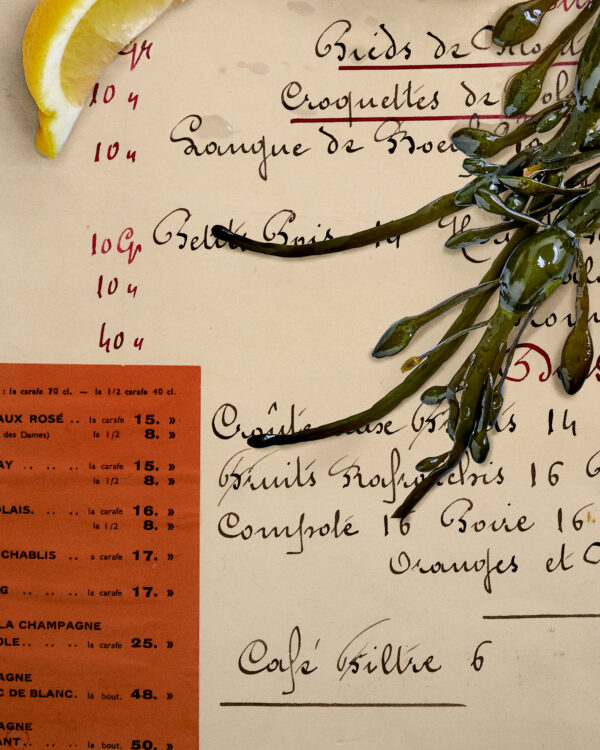 Gr Pieds de
10 " Croquettes de
10 " Langue de Boeuf
10 Gr Petits Pois 14
10 "
40 "
: la carafe 70 cl. — la 1/2 carafe 40 cl.
AUX ROSÉ .. la carafe 15. »
des Dames) la 1/2 8. »
AY .. .. .. la carafe 15. »
la 1/2 8. »
OLAIS. .. .. la carafe 16. »
la 1/2 8. »
CHABLIS .. a carafe 17. »
G .. .. .. .. la carafe 17. »
LA CHAMPAGNE
OLE.. .. .. la carafe 25. »
AGNE
C DE BLANC. la bout. 48. »
AGNE
ANT.. .. .. la bout. 50. »
Croûte aux Fruits 14
Fruits Rafraichis 16
Compote 16 Poire 16
Oranges et
Café Filtre 6